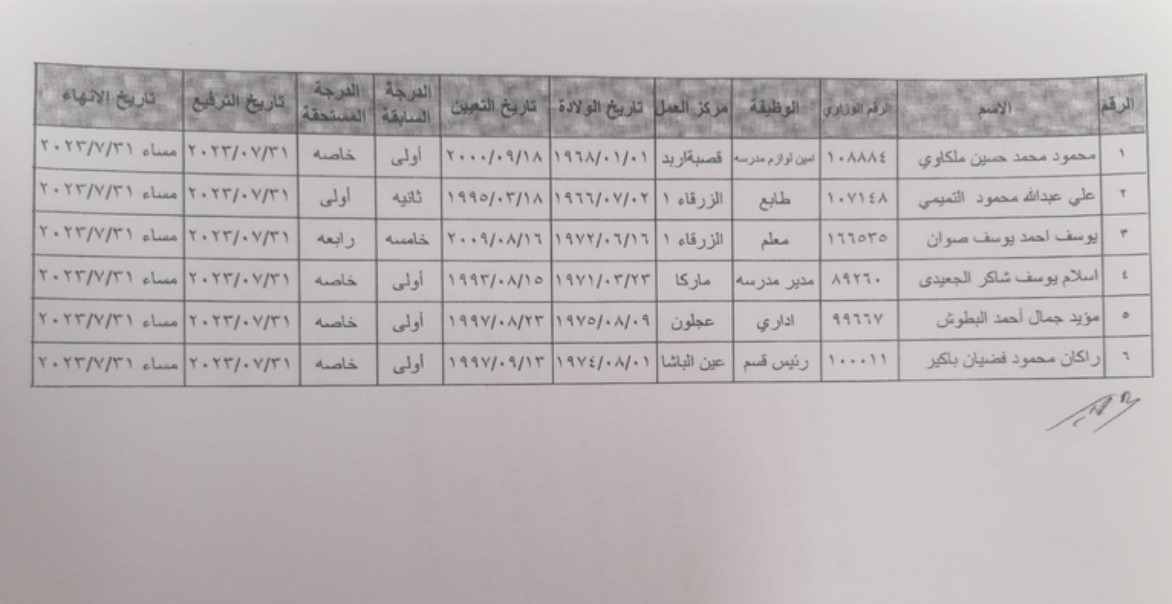 الرقم الاسم الرقم الوزاري الوظيفة مركز العمل تاريخ الولادة تاريخ التعيين الدرجة السابقة الدرجة المستحقة تاريخ الترفيع تاريخ الانهاء
١ محمود محمد حسين ملكاوي ١٠٨٨٨٤ امين لوازم مدرسه قصبةاربد ١٩٦٨/٠١/٠١ ٢٠٠٠/٠٩/١٨ أولى خاصه ٢٠٢٣/٠٧/٣١ مساء ٢٠٢٣/٧/٣١
٢ علي عبدالله محمود التميمي ١٠٧١٤٨ طابع الزرقاء ١ ١٩٦٦/٠٧/٠٢ ١٩٩٥/٠٣/١٨ ثانيه أولى ٢٠٢٣/٠٧/٣١ مساء ٢٠٢٣/٧/٣١
٣ يوسف احمد يوسف صوان ١٦٦٥٣٥ معلم الزرقاء ١ ١٩٧٢/٠٦/١٦ ٢٠٠٩/٠٨/١٦ خامسه رابعه ٢٠٢٣/٠٧/٣١ مساء ٢٠٢٣/٧/٣١
٤ اسلام يوسف شاكر الجعيدى ٨٩٢٦٠ مدير مدرسه ماركا ١٩٧١/٠٣/٢٣ ١٩٩٣/٠٨/١٥ أولى خاصه ٢٠٢٣/٠٧/٣١ مساء ٢٠٢٣/٧/٣١
٥ مؤيد جمال أحمد البطوش ٩٩٦٦٧ اداري عجلون ١٩٧٥/٠٨/٠٩ ١٩٩٧/٠٨/٢٣ أولى خاصه ٢٠٢٣/٠٧/٣١ مساء ٢٠٢٣/٧/٣١
٦ راكان محمود فضيان باكير ١٠٠٠١١ رئيس قسم عين الباشا ١٩٧٤/٠٨/٠١ ١٩٩٧/٠٩/١٣ أولى خاصه ٢٠٢٣/٠٧/٣١ مساء ٢٠٢٣/٧/٣١